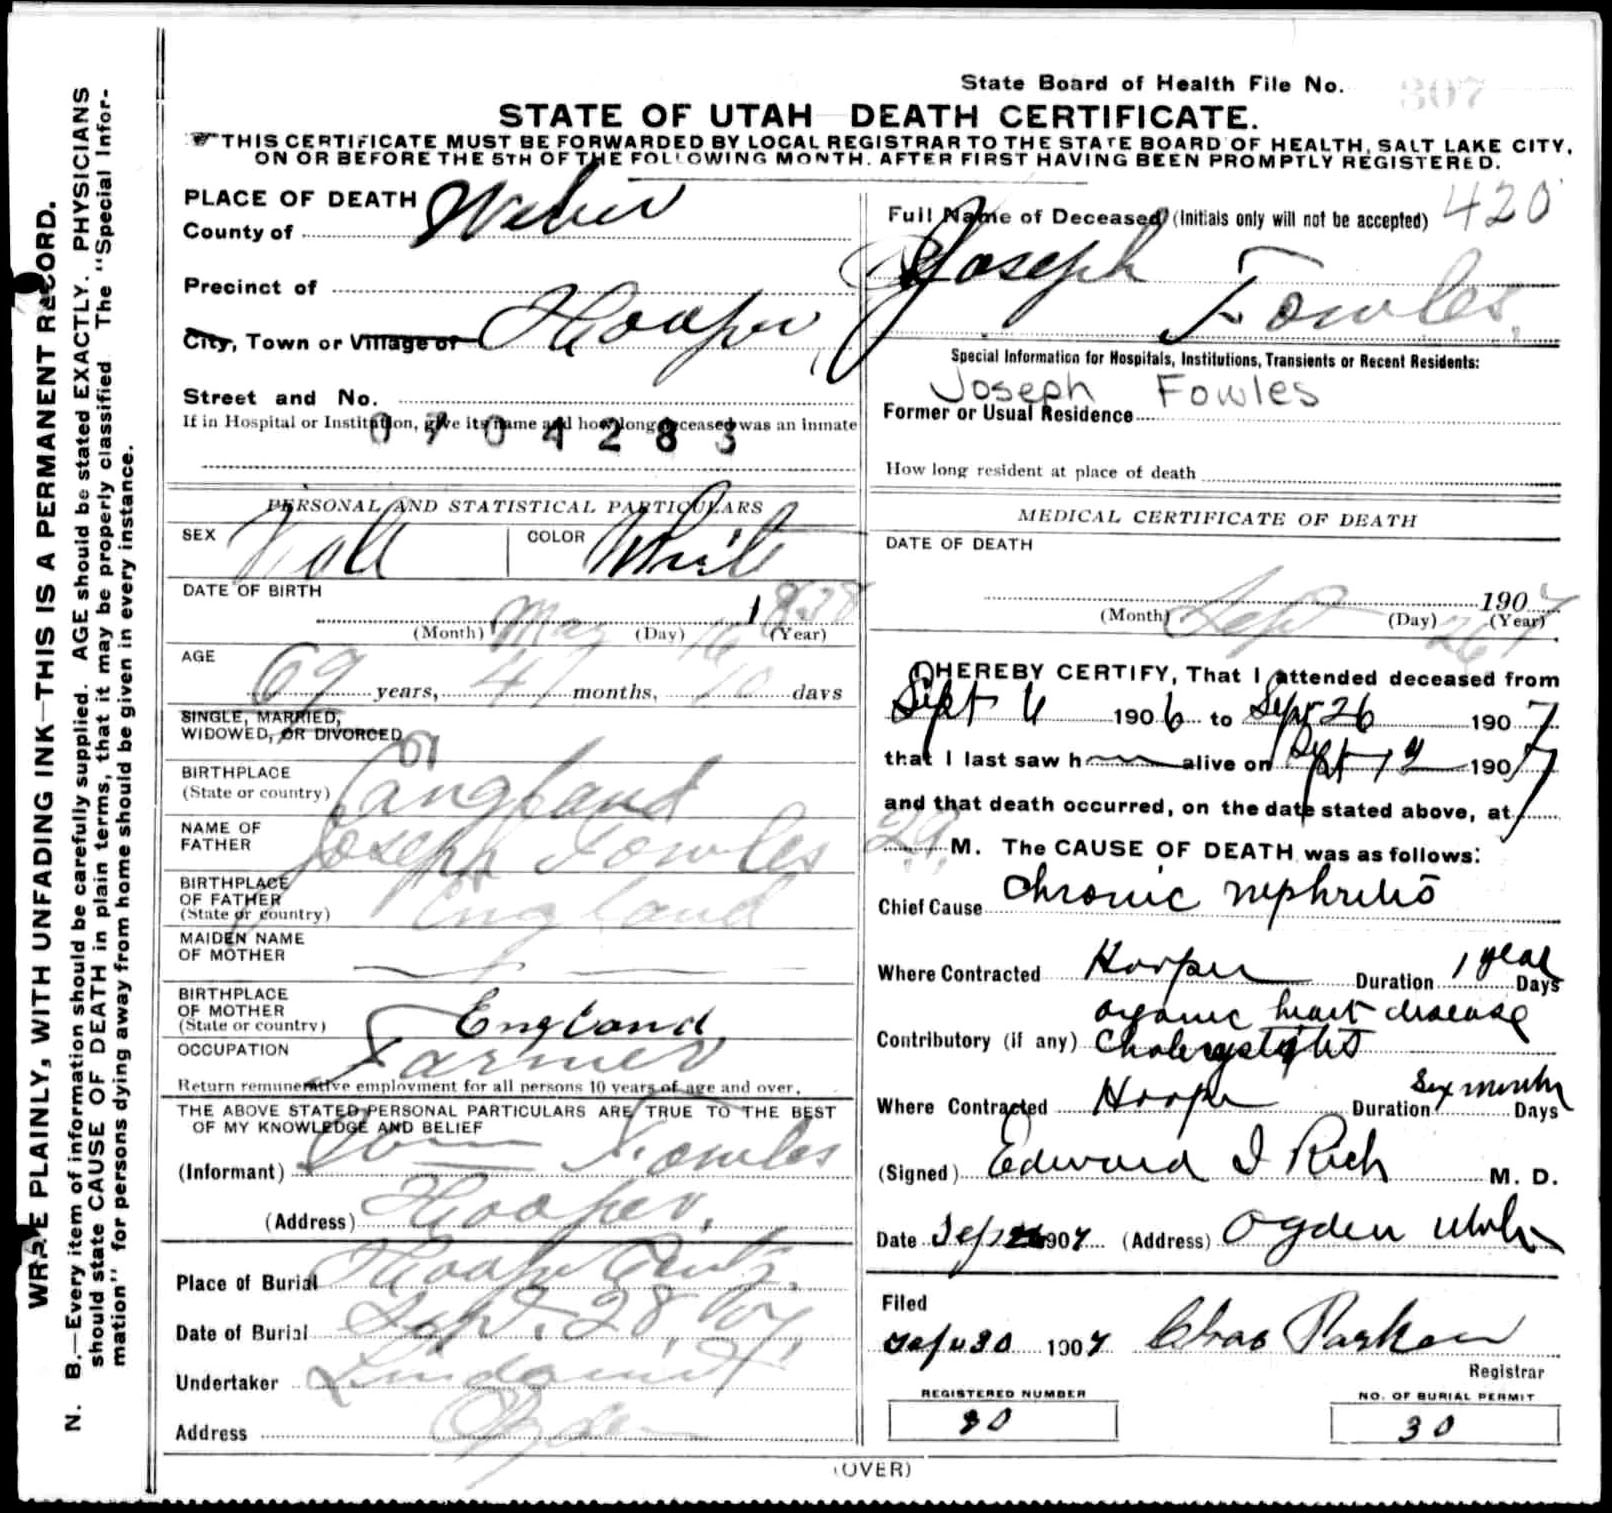 State Board of Health File No. 307
STATE OF UTAH DEATH CERTIFICATE.
THIS CERTIFICATE MUST BE FORWARDED BY LOCAL REGISTRAR TO THE STATE BOARD OF HEALTH, SALT LAKE CITY,
ON OR BEFORE THE 5TH OF THE FOLLOWING MONTH, AFTER FIRST HAVING BEEN PROMPTLY REGISTERED.
WRITE PLAINLY, WITH UNFADING INK—THIS IS A PERMANENT RECORD.
N. B.—Every item of information should be carefully supplied. AGE should be stated EXACTLY. PHYSICIANS
should state CAUSE OF DEATH in plain terms, that it may be properly classified. The "Special Infor-
mation" for persons dying away from home should be given in every instance.
PLACE OF DEATH
County of Weber
Precinct of
City, Town or Village of Hooper
Street and No.
If in Hospital or Institution, give its name and how long deceased was an inmate
0704283
PERSONAL AND STATISTICAL PARTICULARS
SEX Male COLOR White
DATE OF BIRTH
May 16 1838
(Month) (Day) (Year)
AGE
69 years, 4 months, 10 days
SINGLE, MARRIED,
WIDOWED, OR DIVORCED
BIRTHPLACE
(State or country) England
NAME OF
FATHER Joseph Fowles
BIRTHPLACE
OF FATHER
(State or country) England
MAIDEN NAME
OF MOTHER
BIRTHPLACE
OF MOTHER
(State or country) England
OCCUPATION Farmer
Return remunerative employment for all persons 10 years of age and over.
THE ABOVE STATED PERSONAL PARTICULARS ARE TRUE TO THE BEST
OF MY KNOWLEDGE AND BELIEF
(Informant) Fowles
(Address) Hooper.
Place of Burial Hooper
Date of Burial Sept. 28 '07
Undertaker Lindquist
Address Ogden
Full Name of Deceased (Initials only will not be accepted) 420
Joseph
Fowles.
Special Information for Hospitals, Institutions, Transients or Recent Residents:
Joseph Fowles
Former or Usual Residence
How long resident at place of death
MEDICAL CERTIFICATE OF DEATH
DATE OF DEATH
Sept 26 1907
(Month) (Day) (Year)
I HEREBY CERTIFY, That I attended deceased from
Sept 6 1906 to Sept 26 1907
that I last saw h alive on Sept 12 1907
and that death occurred, on the date stated above, at
M. The CAUSE OF DEATH was as follows:
Chief Cause Chronic nephritis
Where Contracted Hooper Duration 1 year Days
organic heart disease
Contributory (if any) Cholecystitis
Where Contracted Hooper Duration Six months Days
(Signed) Edward I Rich M. D.
Date Sep 26 1907 (Address) Ogden Utah
Filed
Sept 30 1907 Chas Parker
Registrar
REGISTERED NUMBER
30
NO. OF BURIAL PERMIT
30
(OVER)